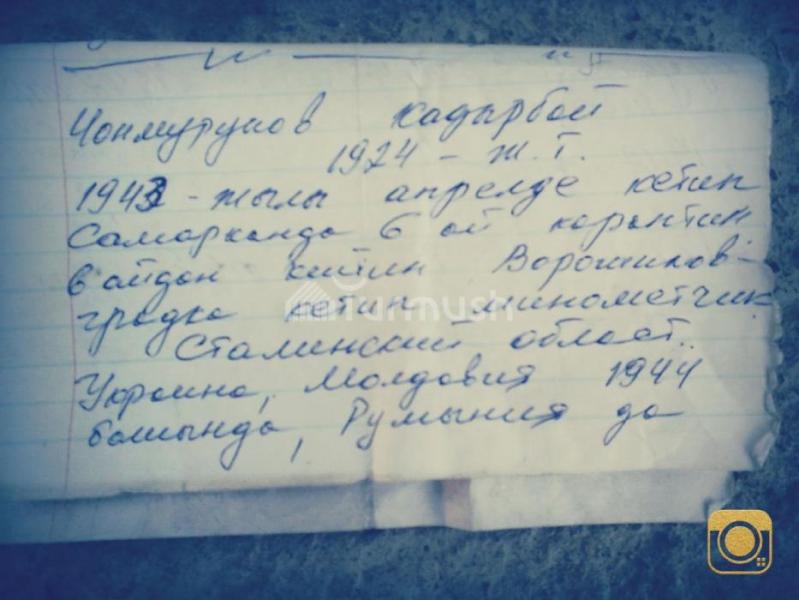 Чонмурунов Кадырбой
1924 - ж.т.
1943 - жылы апрелде кетип
Самаркандо 6 ой карантин
6 айдан кейин Ворошилов-
градка кетип минометчик
Сталинский област.
Украина, Молдовия 1944
башында, Румыния да
turmush